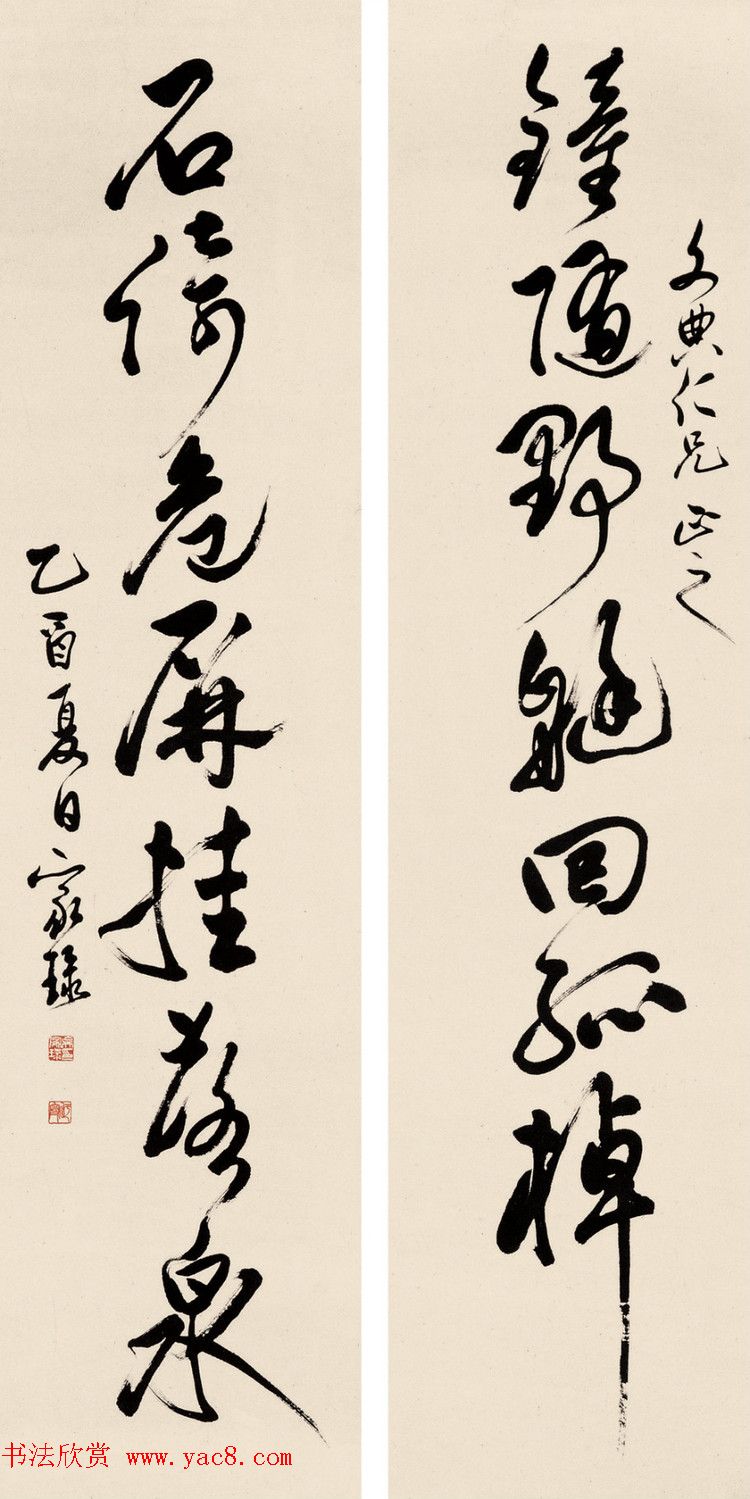 文典仁兄正之
鐘随野艇回孤棹
石倚危屏挂落泉
乙酉夏日家琭
书法欣赏 www.yac8.com